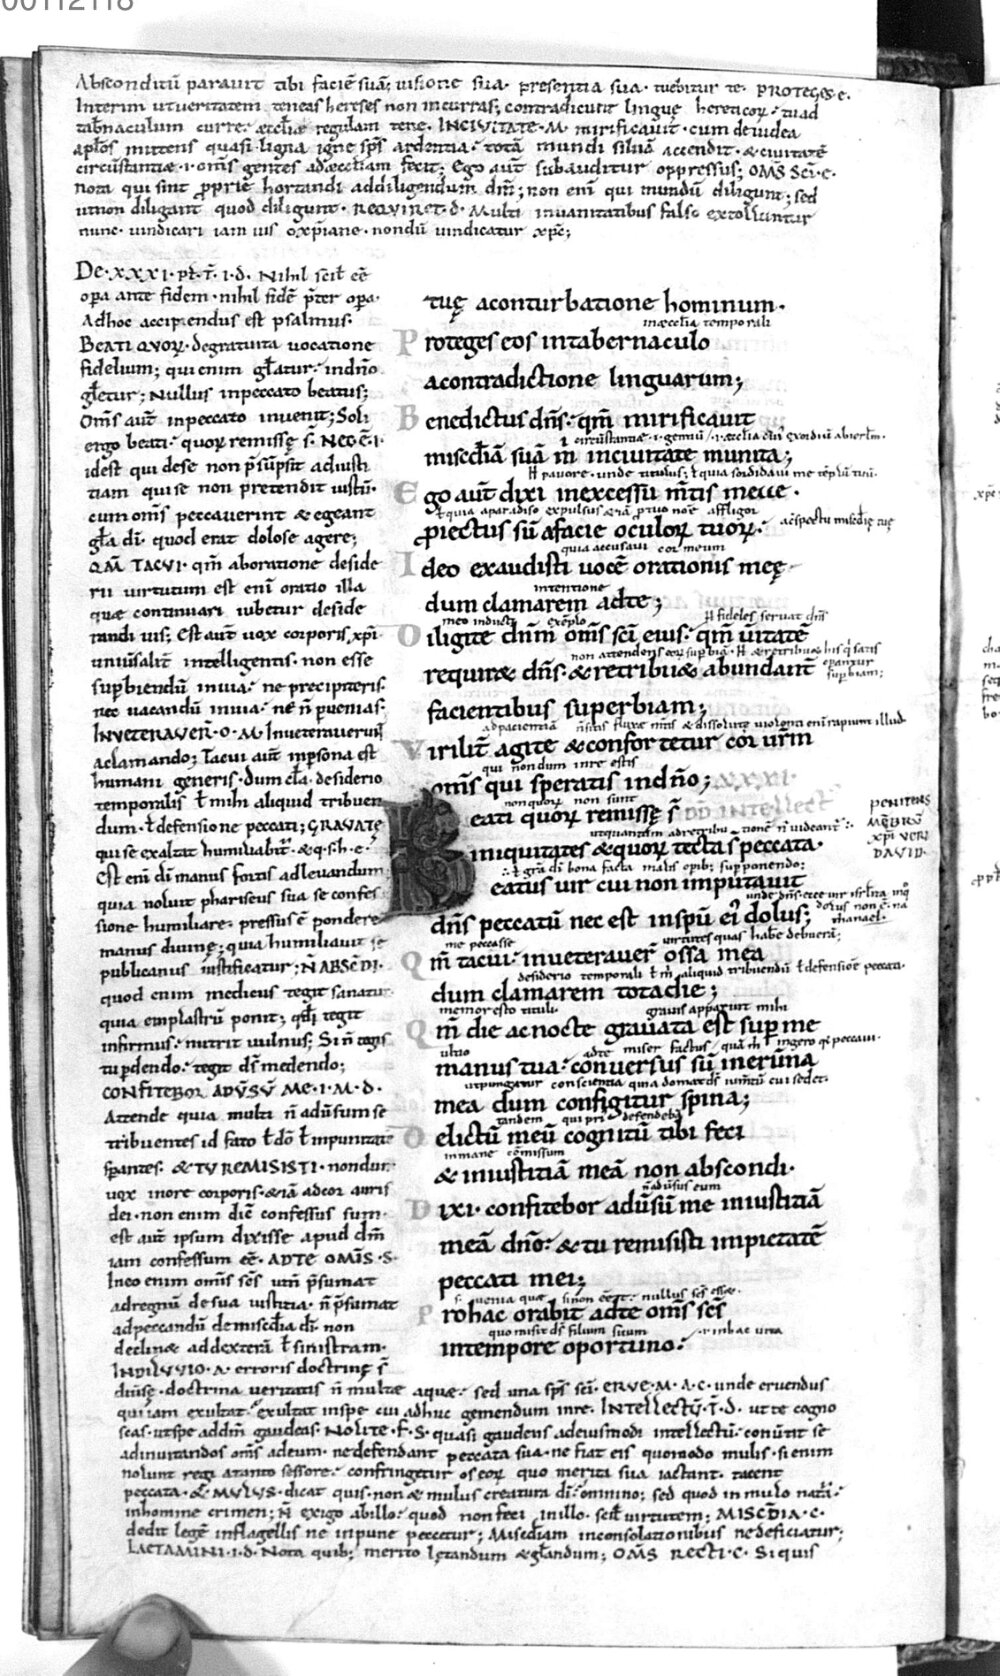 00112118
Absconditū parauit tibi faciē suā; uisione sua. presentia sua. tuebitur te. PROTEGES. e.
Interim ut ueritatem teneas hereses non incurras; contradicunt linguę hereticoꝝ. tu ad
tab̄naculum curre. æccl̄iæ regulam tene. IN CIVITATE. M. mirificauit. cum de iudea
apl̄os mittens quasi ligna igne sp̄s ardentia. totā mundi siluā accendit. & ciuitatē
circūstantiæ .i. om̄s gentes ad æccl̄iam fecit; Ego aut̄ subauditur oppressus; OM̄S SC̄I. e.
nota qui sint proprie hortandi ad diligendum dm̄; non eni qui mundū diligunt; sed
ut non diligant quod diligunt. REQVIRET. d. Multi in uanitatibus falso extolluntur
nunc. uindicari iam uis o xp̄iane. nondū uindicatur xp̄c;
De. XXXI. ps. t̄. i. d. Nihil scil̄ eē
opa ante fidem. nihil fidē p̄ter opa.
Ad hoc accipiendus est psalmus.
BEATI QVOꝜ. de gratuita uocatione
fidelium; qui enim gl̄atur. in dn̄o
gl̄etur; Nullus in peccato beatus;
Om̄s aut̄ in peccato inuenit; Soli
ergo beati. quoꝝ remissę s̄. NEC Ē. I.
id est qui de se non p̄sūpsit ad iusti
tiam qui se non pretendit iustū.
cum om̄s peccauerint & egeant
gl̄a dī. quod erat dolose agere;
QM̄ TACVI. qm̄ ab oratione deside
rii uirtutum est eni oratio illa
quæ continuari iubetur deside
randi uis; Est aut̄ uox corporis xp̄i
uniūsalit̄ intelligentis. non esse
supbiendū in uia. ne precipiteris.
nec uacandū in uia. ne n̄ puenias.
INVETERAVER̄. O. M. Inueterauerunt
a clamando; Tacui aut̄ in psona est
humani generis. Dum cla. desiderio
temporalis ł mihi aliquid tribuen
dum. ł defensione peccati; GRAVATĘ
qui se exaltat humiliabit̄. & q. s. h. e.
Est eni dī manus fortis ad leuandum
quia noluit phariseus sua se confes
sione humiliare. pressus ē pondere
manus diuinę; quia humiliauit se
publicanus iustificatur; N̄ ABSCD̄I.
quod enim medicus tegit sanatur
quia emplastrū ponit; qd̄ tegit
infirmus. nutrit uulnus; Si n̄ tegis
tu pdendo. tegit ds̄ medendo;
CONFITEBOR ADVS̄Ū ME. I. M. D.
Attende quia multi n̄ adūsum se
tribuentes id fato ł do ł impunitatē
sp̄antes. & TV REMISISTI. nondum
uox in ore corporis. & iā ad cor auris
dei. non enim diē confessus sum.
est aut̄ ipsum dixisse apud dm̄
iam confessum eē. AD TE OMĪS. S.
In eo enim omis sc̄s ut n̄ p̄sumat
ad regnū de sua iustitia. n̄ p̄sumat
ad peccandū de miscd̄ia dī. non
declinæ ad dexterā ł sinistram.
IN DILVVIO. A. erroris doctrinę s̄
tuę a conturbatione hominum.
in æccl̄ia temporali
Proteges eos in tabernaculo
a contradictione linguarum;
Benedictus dn̄s. qm̄ mirificauit
miscd̄iā suā m in ciuitate munita;
Ego aut̄ dixi in excessu m̄tis meæ.
proiectus sū a facie oculoꝝ tuoꝝ.
quia accusaui cor meum
Ideo exaudisti uocē orationis meę
intentione
dum clamarem ad te;
fideles seruat dn̄s
Diligite dn̄m om̄s sc̄i eius. qm̄ ūitatē
requiræ dn̄s. & retribuæ abundant̄
facientibus superbiam;
Virilit̄ agite & confortetur cor ur̄m
qui nondum in re estis
om̄s qui speratis in dn̄o; XXXI.
non quoꝝ non sunt
Beati quoꝝ remissę s̄ DD INTELLECT
PENITENS
MĒBRV
XPI VERI
DAVID.
iniquitates & quoꝝ tecta s̄ peccata.
ł gra dī bona facta malis opib; supponendo;
Beatus uir cui non imputauit
dn̄s peccatū nec est in spū ei dolus;
me peccasse uirtutes quas habe debuerā;
Qm̄ tacui. inueterauer̄ ossa mea
desiderio temporali ł m aliquid tribuendū ł defensiōe peccati.
dum clamarem tota die;
memor esto tituli. grauis apparuit mihi
Qm̄ die ac nocte grauata est sup me
manus tua. conuersus sū in erūna
mea dum configitur spina;
tandem qui pri defendebā
Delictū meū cognitū tibi feci
inmane cōmissum
& iniustitiā meā non abscondi.
n̄ adūsus eum
Dixi. confitebor adūsū me iniustitiā
meā dn̄o. & tu remisisti impietatē
peccati mei;
Pro hac orabit ad te omīs sc̄s
quo misit ds̄ filium suum
in tempore oportuno.
diūsę. doctrina ueritatis n̄ multæ aquæ. sed una sp̄s sc̄i. ERVE. M. A. C. unde eruendus
qui iam exultat. exultat in spe cui adhuc gemendum in re. INTELLECTŪ. T. D. ut te cogno
scas. ut spe ad dm̄ gaudeas. NOLITE. F. S. quasi gaudens ad eiusmodi intellectū. conūtit se
ad inuitandos om̄s ad eum. ne defendant peccata sua. ne fiat eis quomodo mulis. si enim
nolunt regi a tanto sessore. confringetur os eoꝝ quo merita sua iactant. tacent
peccata. & MVLVS. dicat quis. non & mulus creatura dī. omnino; sed quod in mulo natr̄.
in homine crimen; N̄ exigo ab illo. quod non feci in illo. scil̄ uirtutem; MISCD̄IA. C.
dedit legē in flagellis ne inpune peccetur; Miscd̄iam in consolationibus ne deficiatur;
LAETAMINI. I. D. Nota quib; merito lętandum & gl̄andum; OM̄S RECTI. C. Si quis